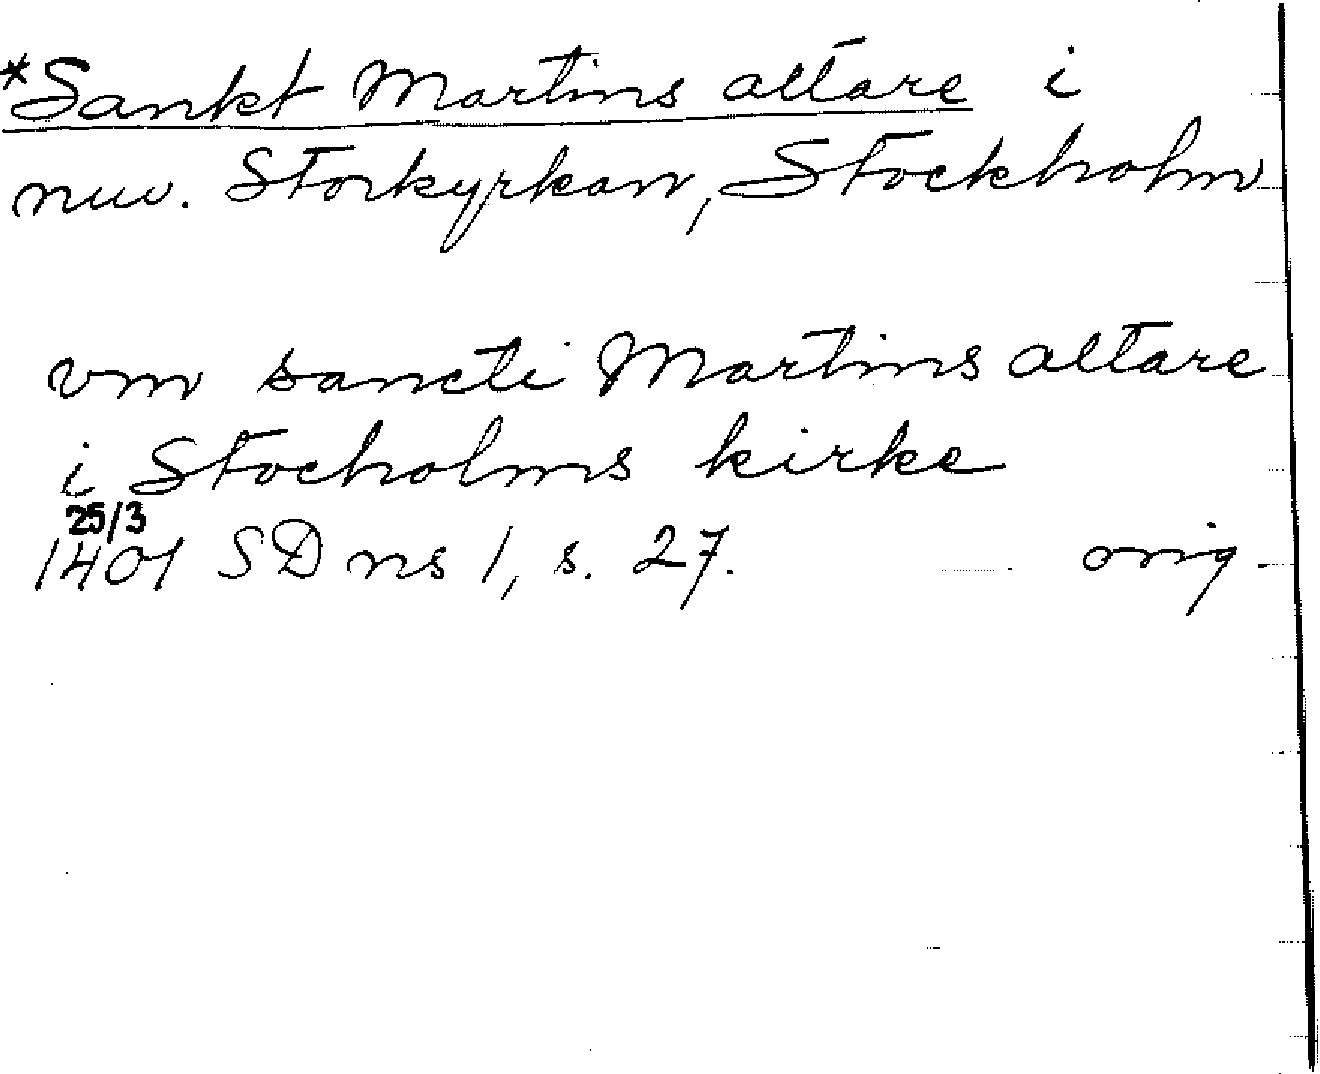 *Sankt Martins altare i
nuv. Storkyrkan, Stockholm
vm sancti Martins altare
i Stocholms kirke
25/3
1401 SD ns 1, s. 27. orig.